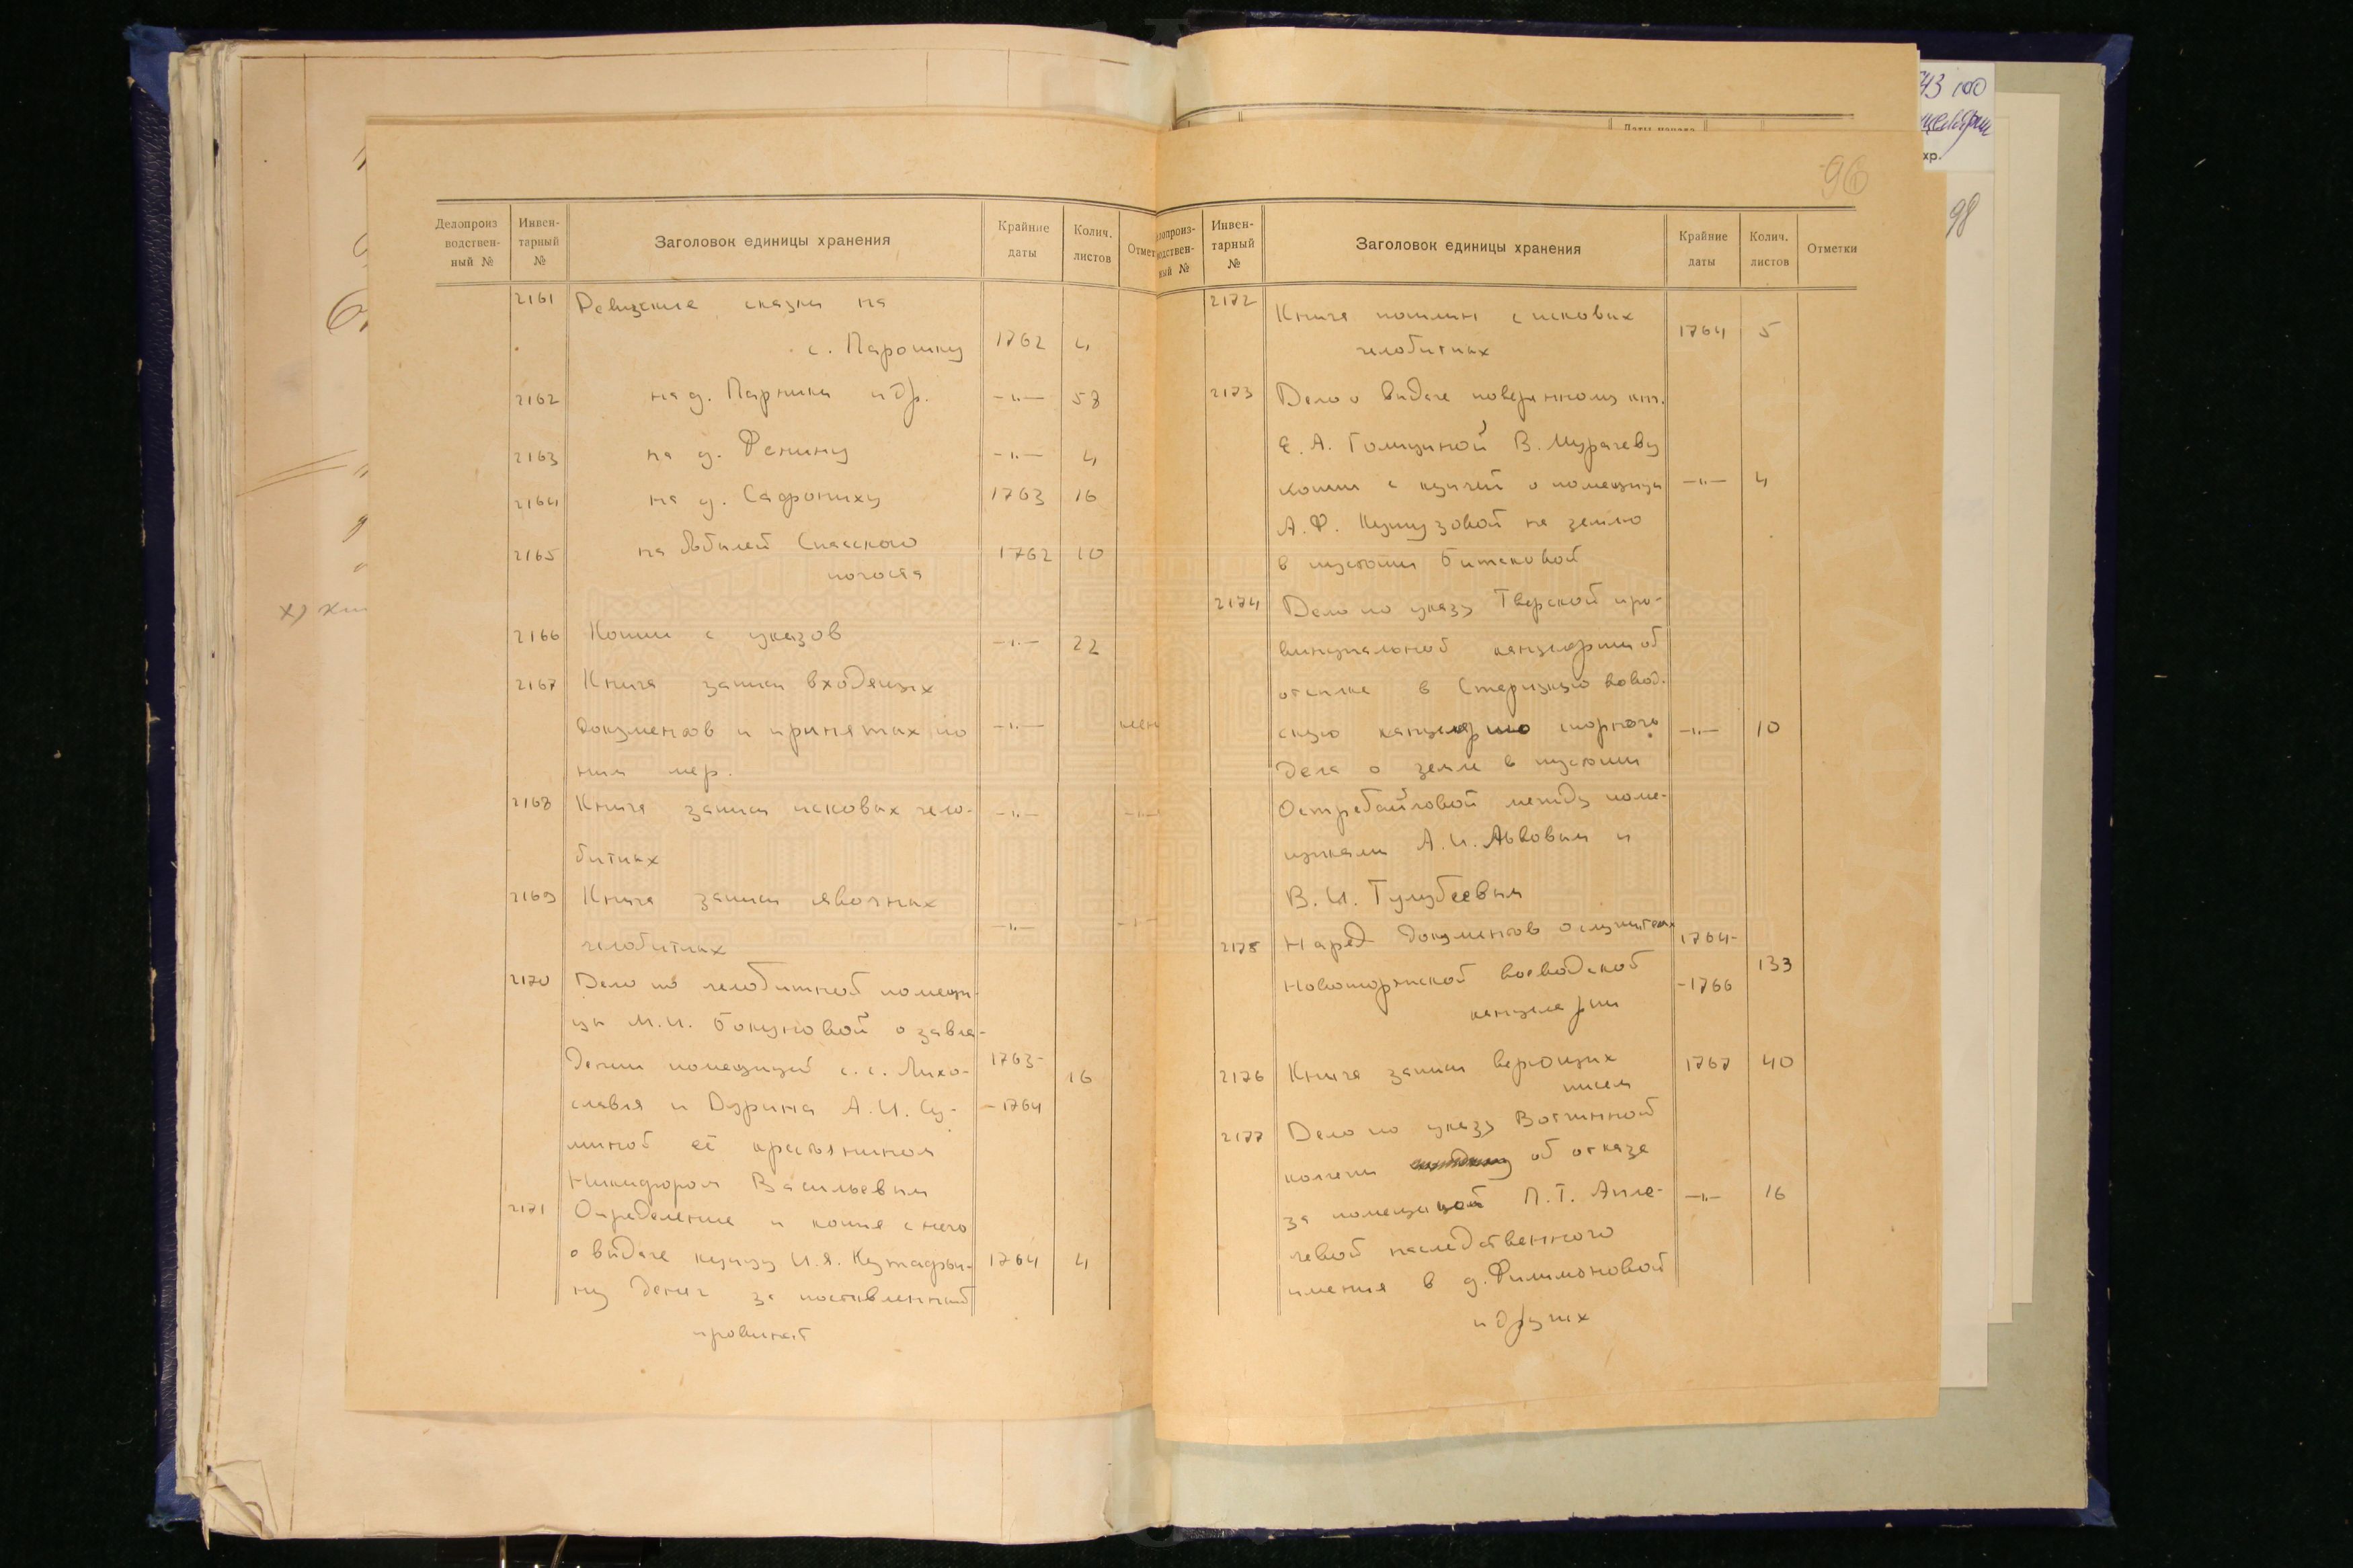 96
Делопроиз
водствен-
ный №
Инвен-
тарный
№
Заголовок единицы хранения
Крайние
даты
Колич.
листов
Отмет
2161 Ревизские сказки на
с. Парошку 1762 4
2162 на д. Парники и др. —"— 58
2163 на д. Фенину —"— 4
2164 на д. Сафрониху 1763 16
2165 на бобылей Спасского 1762 10
погоста
2166 Копии с указов —"— 22
2167 Книга записи входящих
документов и принятых по —"—
ним мер.
2168 Книга записи исковых чело- —"— —"—
битных
2169 Книга записи явочных
челобитных —"— —"—
2170 Дело по челобитной помещи-
цы М.И. Бокуновой о завла-
дении помещицей с.с. Лихо- 1763- 16
славля и Дурина А.И. Су- -1764
миной её крестьянином
Никифором Васильевым
2171 Определение и копия с него
о выдаче купцу И.Я. 1764 4
ну денег за поставленный
провиант
опроиз-
водствен-
ный №
Инвен-
тарный
№
Заголовок единицы хранения
Крайние
даты
Колич.
листов
Отметки
2172 Книга пошлин с исковых 1764 5
челобитных
2173 Дело о выдаче поверенному кн.
Е. А. Голицыной В. Мурачеву
копии с купчей о помещицы —"— 4
А.Ф. Кутузовой на землю
в пустоши Битяковой
2174 Дело по указу Тверской про-
винциальной канцелярии об
отсылке в Старицкую воевод.
скую канцелярию спорного —"— 10
дела о земле в пустоши
между поме-
щиками А.И. Львовым и
В. И. Тулубеевым
2175 Наряд документов о служителях 1764- 133
Новоторжской воеводской -1766
канцелярии
2176 Книга записи верющих 1767 40
писем
2177 Дело по указу Вотчинной
колегии об отказе
за помещицей П.Т. Апле- —"— 16
чевой наследственного
имения в д. Филимоновой
и других
43 100
хр.
98